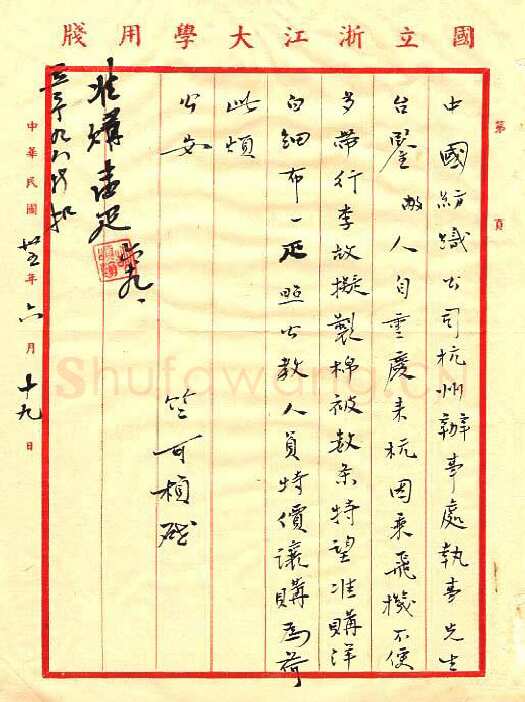 國立浙江大學用牋
第 頁
中國紡織公司杭州辦事處執事先生
台鑒 敝人自重慶來杭因乘飛機不便
多帶行李故擬製棉被數条特望准購洋
白細布一疋照公教人員特價讓購為荷
此煩
公安
竺可楨啟
准購壹疋
中華民國卅五年六月十九日
Shufawang.cn